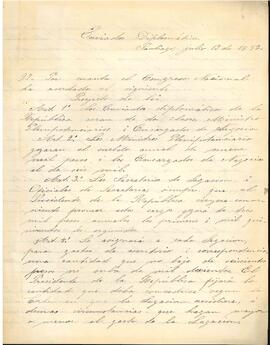 Enviados Diplomáticos
Santiago, julio 12 de 1852.
Por cuanto el Congreso Nacional
ha acordado el siguiente
Proyecto de lei:
Art. 1º Los Enviados diplomáticos de la
República serán de dos clases Ministros
Plenipotenciarios i Encargados de Negocios
Art. 2º Los Ministros Plenipotenciarios
gozarán el sueldo anual de nueve
mil pesos i los Encargados de Negocios
el de seis mil.
Art. 3º Los Secretarios de Legacion i
Oficiales de Secretaría siempre que el
Presidente de la República
pesos anuales los primeros i mil
quinientos los segundos.
Art. 4º Se asignará a cada Legacion,
para gastos de escritorio i correspondencia
una cantidad que no baje de
pesos ni suba de mil El
Presidente de la República fijará la
cantidad que deba
en que la Legacion i
demas circunstancias que hagan mayor
o menor el gasto de la Legacion